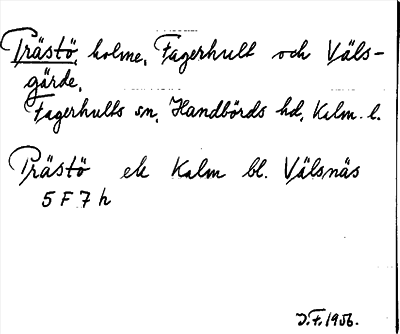 Prästö, holme, Fagerhult och Väls-
gärde,
Fagerhults sn, Handbörds hd, Kalm. l.
Prästö ek Kalm bl. Välsnäs
5 F 7 h
J.F. 1956.